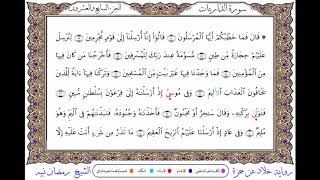 سورة الذاريات
الجزء السابع والعشرون
قَالَ فَمَا خَطْبُكُمُۥٓ أَيُّهَا ٱلْمُرْسَلُونَ ۝ قَالُوٓا۟ إِنَّآ أُرْسِلْنَآ إِلَىٰ قَوْمٍ مُّجْرِمِينَ ۝ لِنُرْسِلَ
عَلَيْهِمْ حِجَارَةً مِّن طِينٍ ۝ مُّسَوَّمَةً عِندَ رَبِّكَ لِلْمُسْرِفِينَ ۝ فَأَخْرَجْنَا مَن كَانَ فِيهَا
مِنَ ٱلْمُؤْمِنِينَ ۝ فَمَا وَجَدْنَا فِيهَا غَيْرَ بَيْتٍ مِّنَ ٱلْمُسْلِمِينَ ۝ وَتَرَكْنَا فِيهَآ ءَايَةً لِّلَّذِينَ
يَخَافُونَ ٱلْعَذَابَ ٱلْأَلِيمَ ۝ وَفِى مُوسَىٰٓ إِذْ أَرْسَلْنَٰهُ إِلَىٰ فِرْعَوْنَ بِسُلْطَٰنٍ مُّبِينٍ ۝
فَتَوَلَّىٰ بِرُكْنِهِۦ وَقَالَ سَٰحِرٌ أَوْ مَجْنُونٌ ۝ فَأَخَذْنَٰهُ وَجُنُودَهُۥ فَنَبَذْنَٰهُمْ فِى ٱلْيَمِّ وَهُوَ
مُلِيمٌ ۝ وَفِى عَادٍ إِذْ أَرْسَلْنَا عَلَيْهِمُ ٱلرِّيحَ ٱلْعَقِيمَ ۝ مَا تَذَرُ مِن شَىْءٍ أَتَتْ عَلَيْهِ إِلَّا
رواية خلاد عن حمزة
الشيخ رمضان نبيه